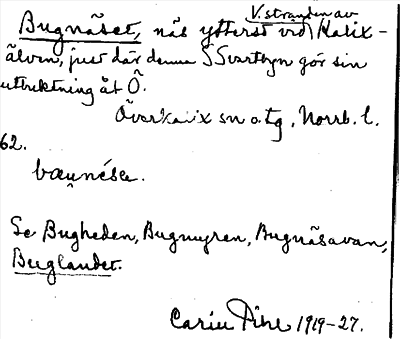 V. stranden av
Bugnäset, näs ytterst vid Kalix-
älven, just där denna S Svartbyn gör sin
utbuktning åt Ö.
Överkalix sn o. tg, Norrb. l.
62.
Se Bugheden, Bugmyren, Bugnäsavan,
Buglandet.
Carin Pihl 1919-27.